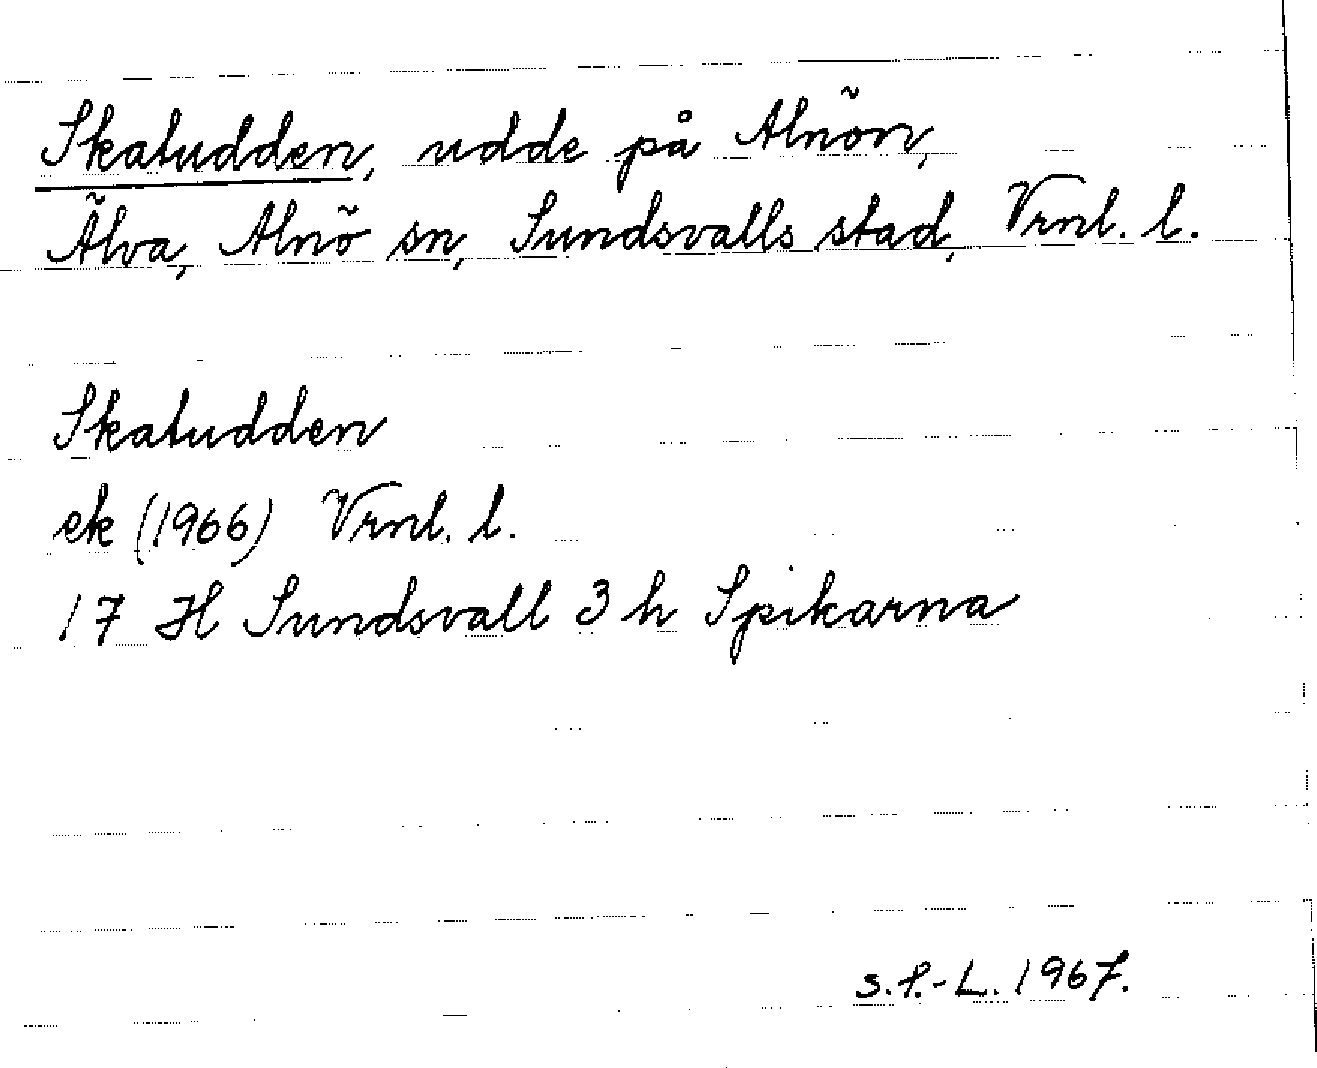 Skatudden, udde på Alnön,
Älva, Alnö sn, Sundsvalls stad, Vrnl. l.
Skatudden
ek (1966) Vrnl. l.
17 H Sundsvall 3 h Spikarna
S.P.-L. 1967.